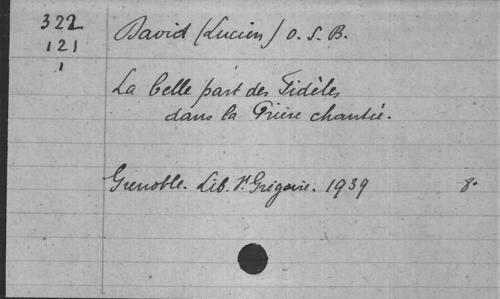 322 David (Lucien) O. S. B.
121
1
La belle part des Fidèles
dans la Prière chantée.
Grenoble. Lib. St Grégoire. 1939 8°